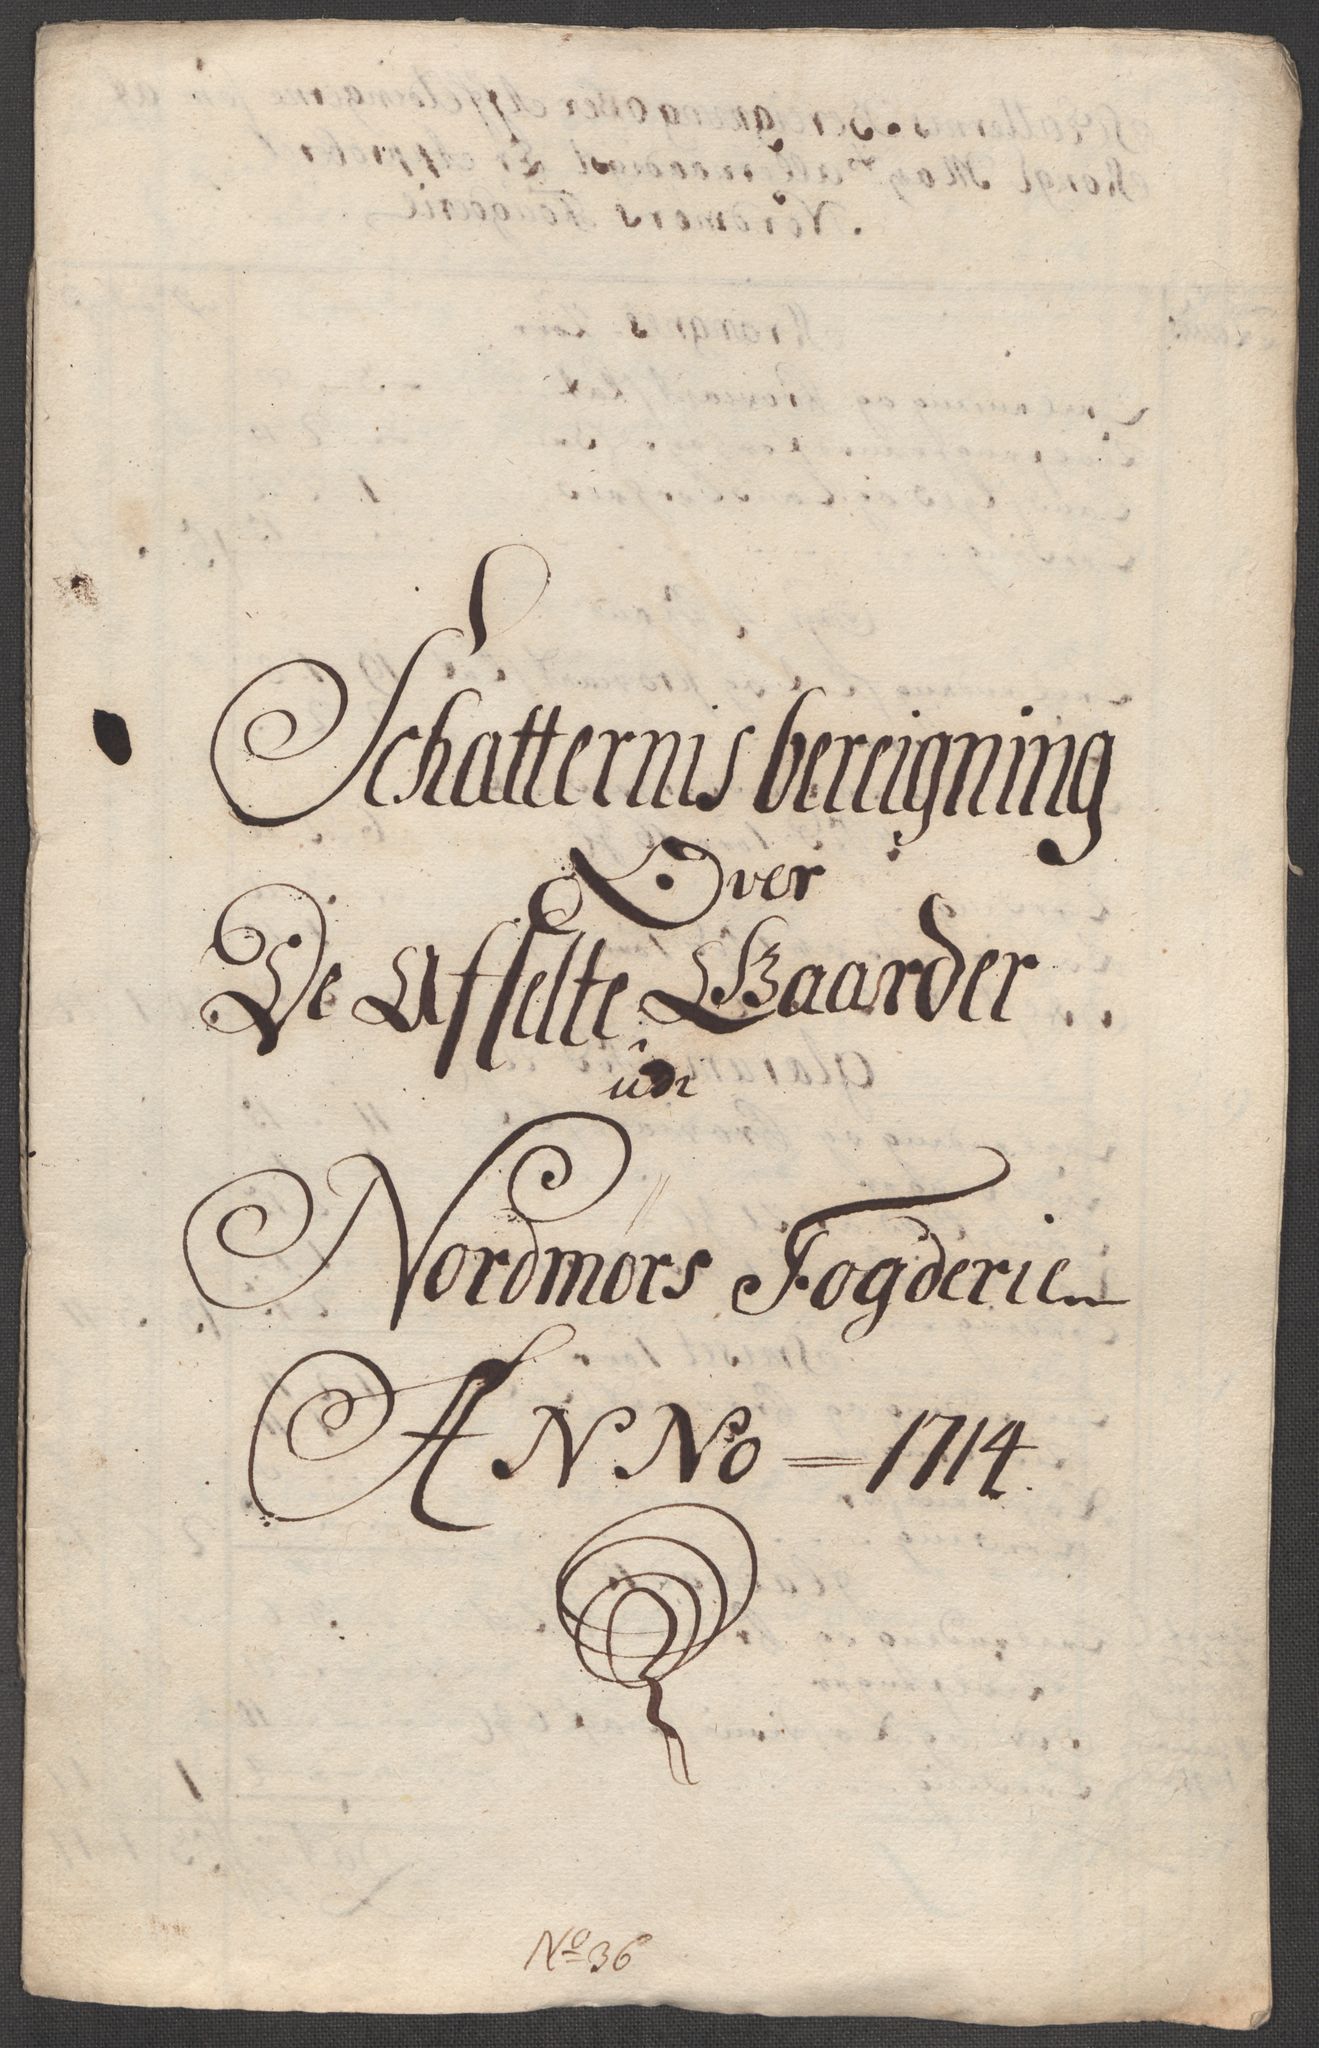 Schatternis bereigning
Over
De Affelte Gaarder
udi
Nordmørs Fogderie
ANNo = 1714.
No 36